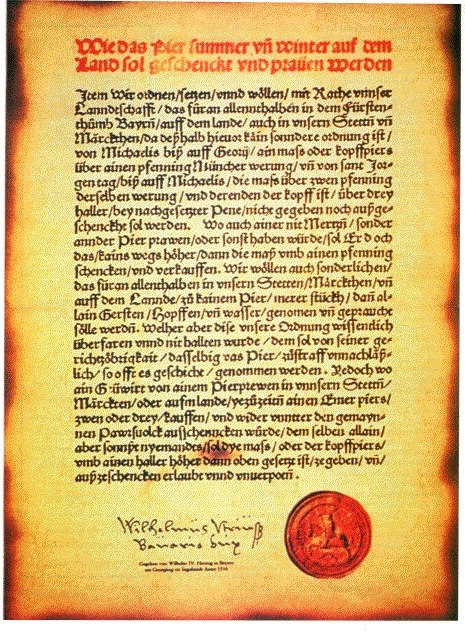 Wie das Pier summer vñ winter auf dem
Land sol geschenckt vnd prauen werden
Item Wir ordnen/setzen/vnnd wöllen/mit Rathe vnnser
Lanndtschafft/das füran allenthalben in dem Fürsten-
thůmb Bayrn/auff dem lande/auch in vnsern Stetn̄ vñ
Märckthen/da deßhalb hieuor kain sonndere ordnung ist/
von Michaelis biß auff Georij/ain mass oder kopffpiers
über ainen pfenning Müncher werung/vñ von sant Jor-
gen tag/biß auff Michaelis/die mass über zwen pfenning
derselben werung/vnd derenden der kopff ist/über drey
haller/bey nachgesetzter Pene/nicht gegeben noch außge-
schenckht sol werden. Wo auch ainer nit Mertzn̄/sonder
annder Pier prawen/oder sonst haben würde/sol Er doch
das/kains wegs höher/dann die maß vmb ainen pfenning
schencken/vnd verkauffen. Wir wöllen auch sonderlichen/
das füran allenthalben in vnsern Stetten/Märckthen/vñ
auff dem Lannde/zů kainem Pier/merer stückh/dañ al-
lain Gersten/Hopffen/vñ wasser/genomen vñ gepraucht
sölle werdn̄. Welher aber dise vnsere Ordnung wissendlich
überfaren vnnd nit hallten wurde/dem sol von seiner ge-
richtzöbrigkait/dasselbig vas Pier/zůstraff vnnachläß-
lich/so offt es geschicht/genommen werden. Jedoch wo
ain Güwirt von ainem Pierprewen in vnnsern Stettn̄/
Märckten/oder aufm lande/yezůzeitn̄ ainen Emer piers/
zwen oder drey/kauffen/vnd wider vnntter den gemayn-
nen Pawrsuolck ausschenncken würde/dem selben allain/
aber sonnst nyemandts/sol dye mass/oder der kopffpiers/
vmb ainen haller höher dann oben gesetzt ist/zegeben/vñ/
außzeschencken erlaubt vnnd vnuerpotn̄.
Wilhelmus
Bavarie Dux
Gegeben von Wilhelm IV. Herzog in Bayern
am Georgitag zu Ingolstadt Anno 1516